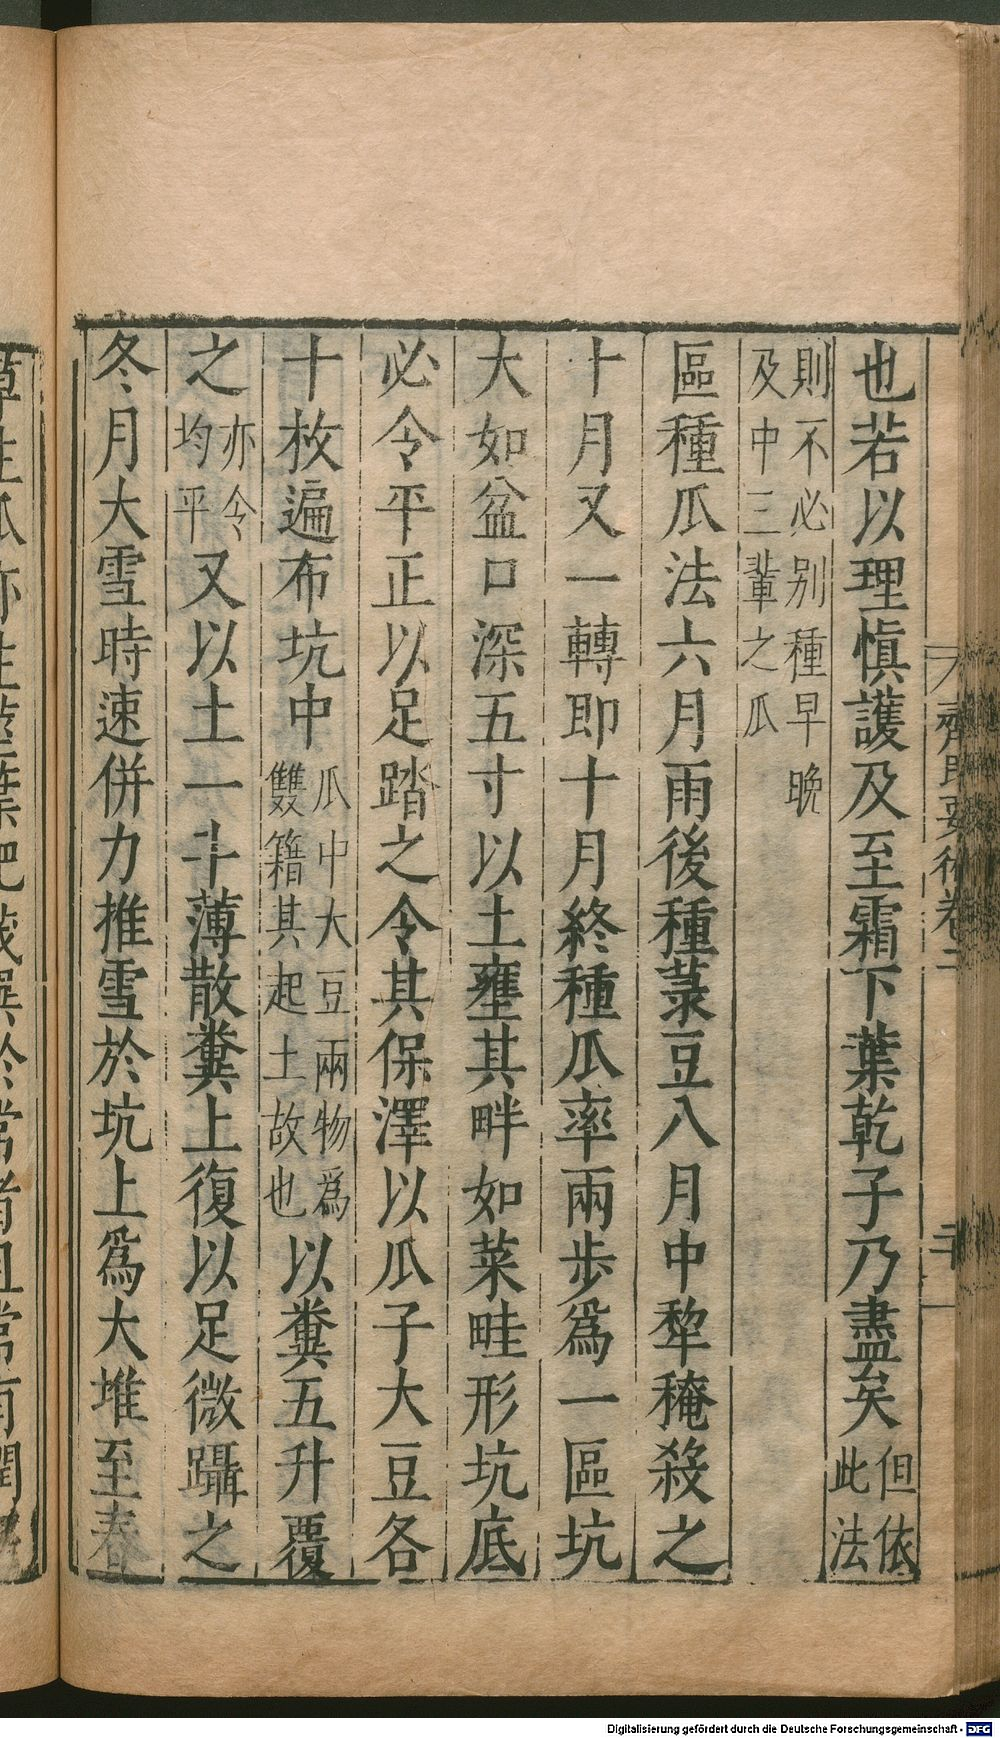 齊民要術卷二
二十
也若以理愼護及至霜下葉乾子乃盡矣但依此法
則不必别種早晩及中三輩之瓜
區種瓜法六月雨後種菉豆八月中犂䅖殺之
十月又一轉即十月終種瓜率兩步爲一區坑
大如盆口深五寸以土壅其畔如菜畦形坑底
必令平正以足踏之令其保澤以瓜子大豆各
十枚遍布坑中瓜中大豆兩物爲雙籍其起土故也以糞五升覆
之亦令均平又以土一斗薄散糞上復以足微躡之
冬月大雪時速併力推雪於坑上爲大堆至春
Digitalisierung gefördert durch die Deutsche Forschungsgemeinschaft - DFG